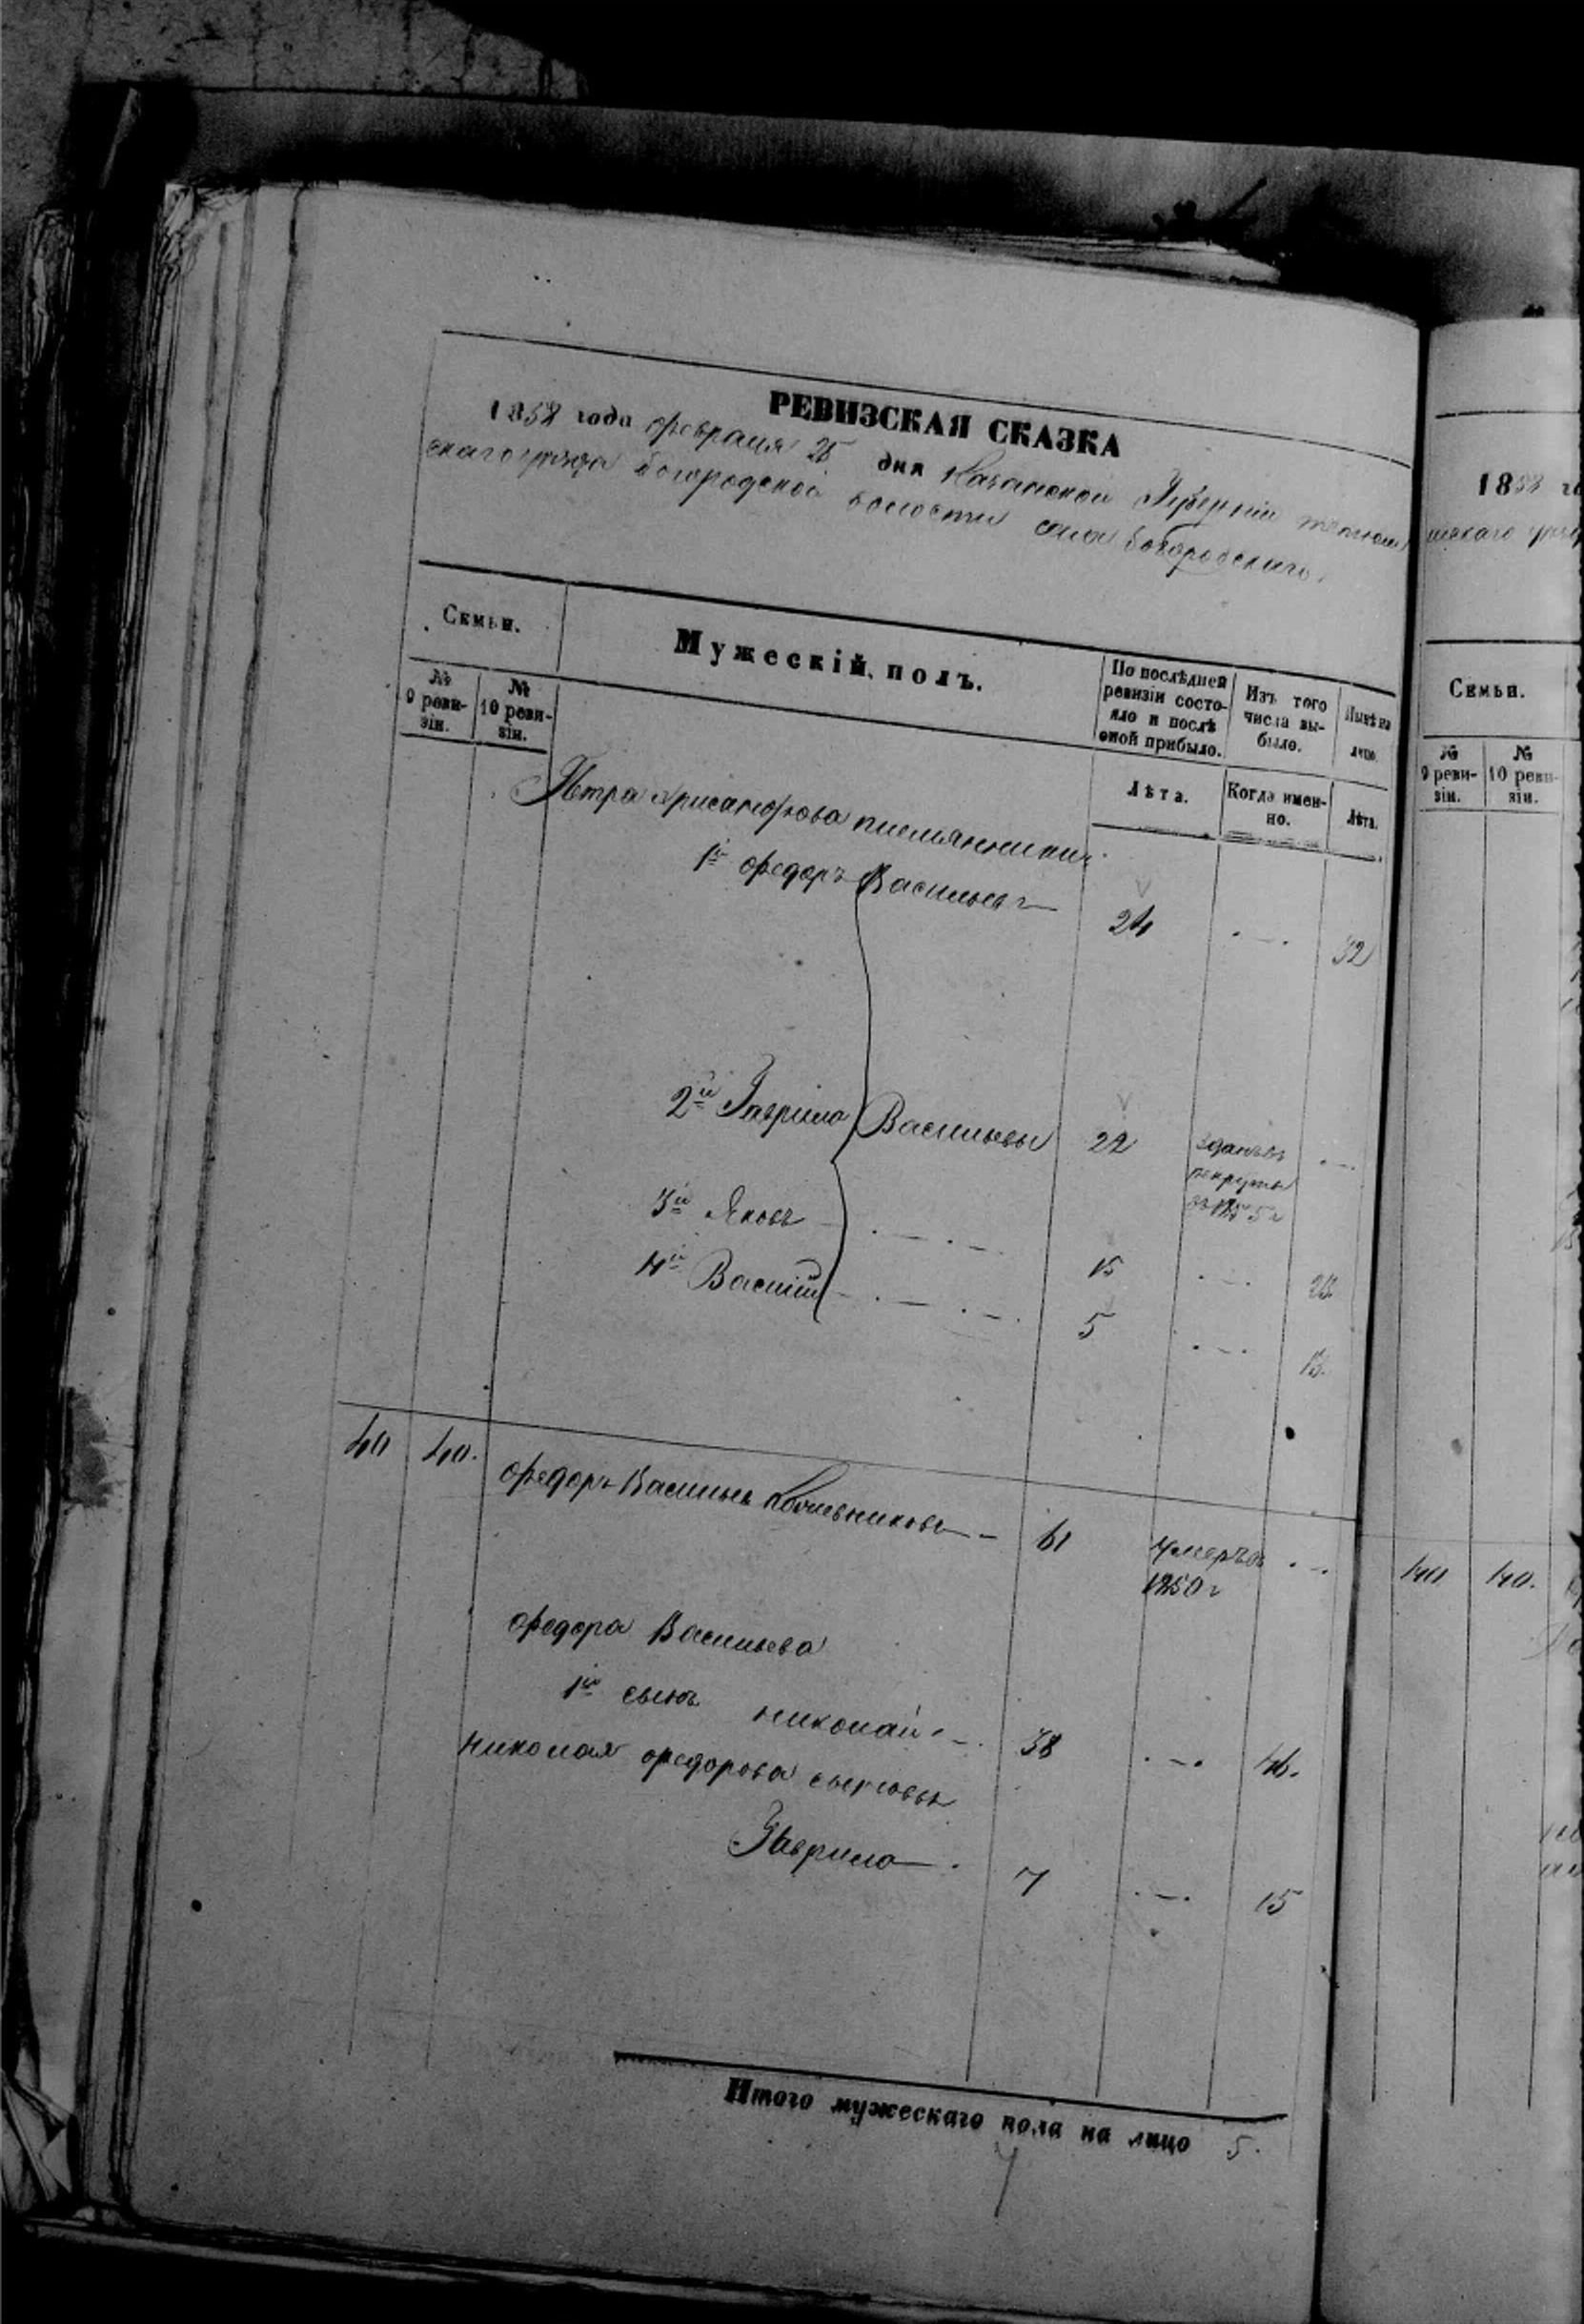 РЕВИЗСКАЯ СКАЗКА
1858 года февраля 25 дня Казанской Губерніи
скаго уѣзда Богородской волости села Богородскаго
Семьи.
Мужескій полъ.
По послѣдней ревизіи состояло и послѣ оной прибыло.
Изъ того числа выбыло.
Нынѣ на лицо.
№ 9 ревизіи.
№ 10 ревизіи.
Лѣта.
Когда именно.
Лѣта.
Петра Хрисанфова племянники
1й Федоръ Васильевъ 24 32
2й Гаврило Васильевы 22 зданъ въ
рекруты
въ 1855 г
3й Яковъ 15 23.
4й Василій 5 13.
40 40. Федоръ Васильевъ Кожевниковъ 61 умеръ въ
1850 г
Федора Васильева
1й сынъ Николай 38 46.
Николая Федорова сыновья
Гаврило 7 15
Итого мужескаго пола на лицо 5.
7
1858
Семьи.
№ 9 ревизіи.
№ 10 ревизіи.
40 40.